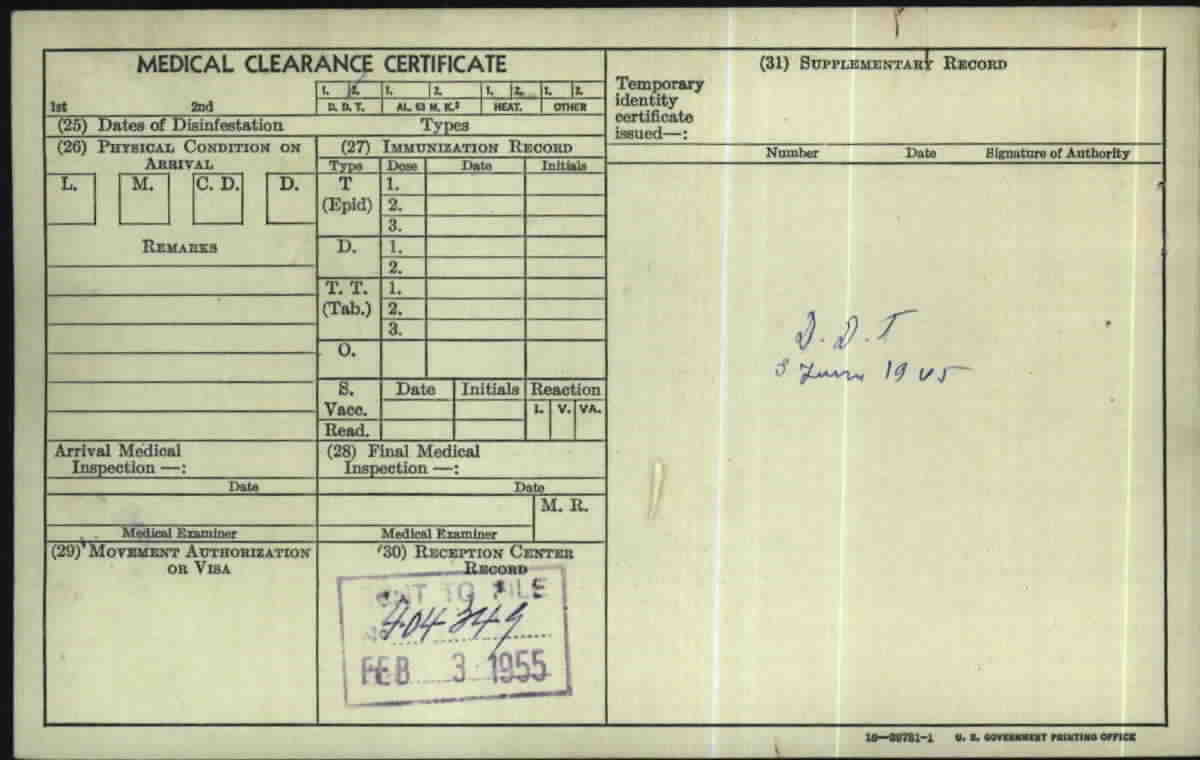 MEDICAL CLEARANCE CERTIFICATE
1. 2. 1. 2. 1. 2. 1. 2.
1st 2nd D. D. T. AL. 63 M. K.³ HEAT. OTHER
(25) Dates of Disinfestation Types
(26) PHYSICAL CONDITION ON
ARRIVAL
L. M. C. D. D.
REMARKS
(27) IMMUNIZATION RECORD
Type Dose Date Initials
T 1.
(Epid) 2.
3.
D. 1.
2.
T. T. 1.
(Tab.) 2.
3.
O.
S. Date Initials Reaction
Vacc. I. V. VA.
Read.
Arrival Medical
Inspection —:
Date
Medical Examiner
(28) Final Medical
Inspection —:
Date
M. R.
Medical Examiner
(29) MOVEMENT AUTHORIZATION
OR VISA
(30) RECEPTION CENTER
RECORD
SENT TO FILE
404349
FEB 3 1955
(31) SUPPLEMENTARY RECORD
Temporary
identity
certificate
issued—:
Number Date Signature of Authority
D. D. T
3 June 1945
16—39781-1 U. S. GOVERNMENT PRINTING OFFICE